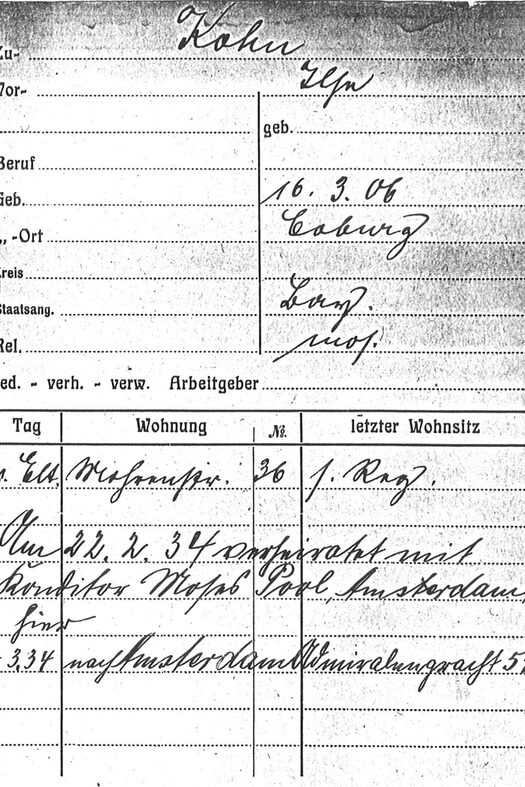 Zu- Kohn
Vor- Ilse
geb.
Beruf
Geb. 16. 3. 06
„ -Ort Coburg
Kreis
Staatsang. Bay.
Rel. mos.
led. - verh. - verw. Arbeitgeber
Tag Wohnung №. letzter Wohnsitz
s. Elt. Mohrenstr. 36 s. Reg.
Am 22. 2. 34 verheiratet mit
Konditor Moses Pool, Amsterdam,
hier
3.34 nach Amsterdam Admiralengracht